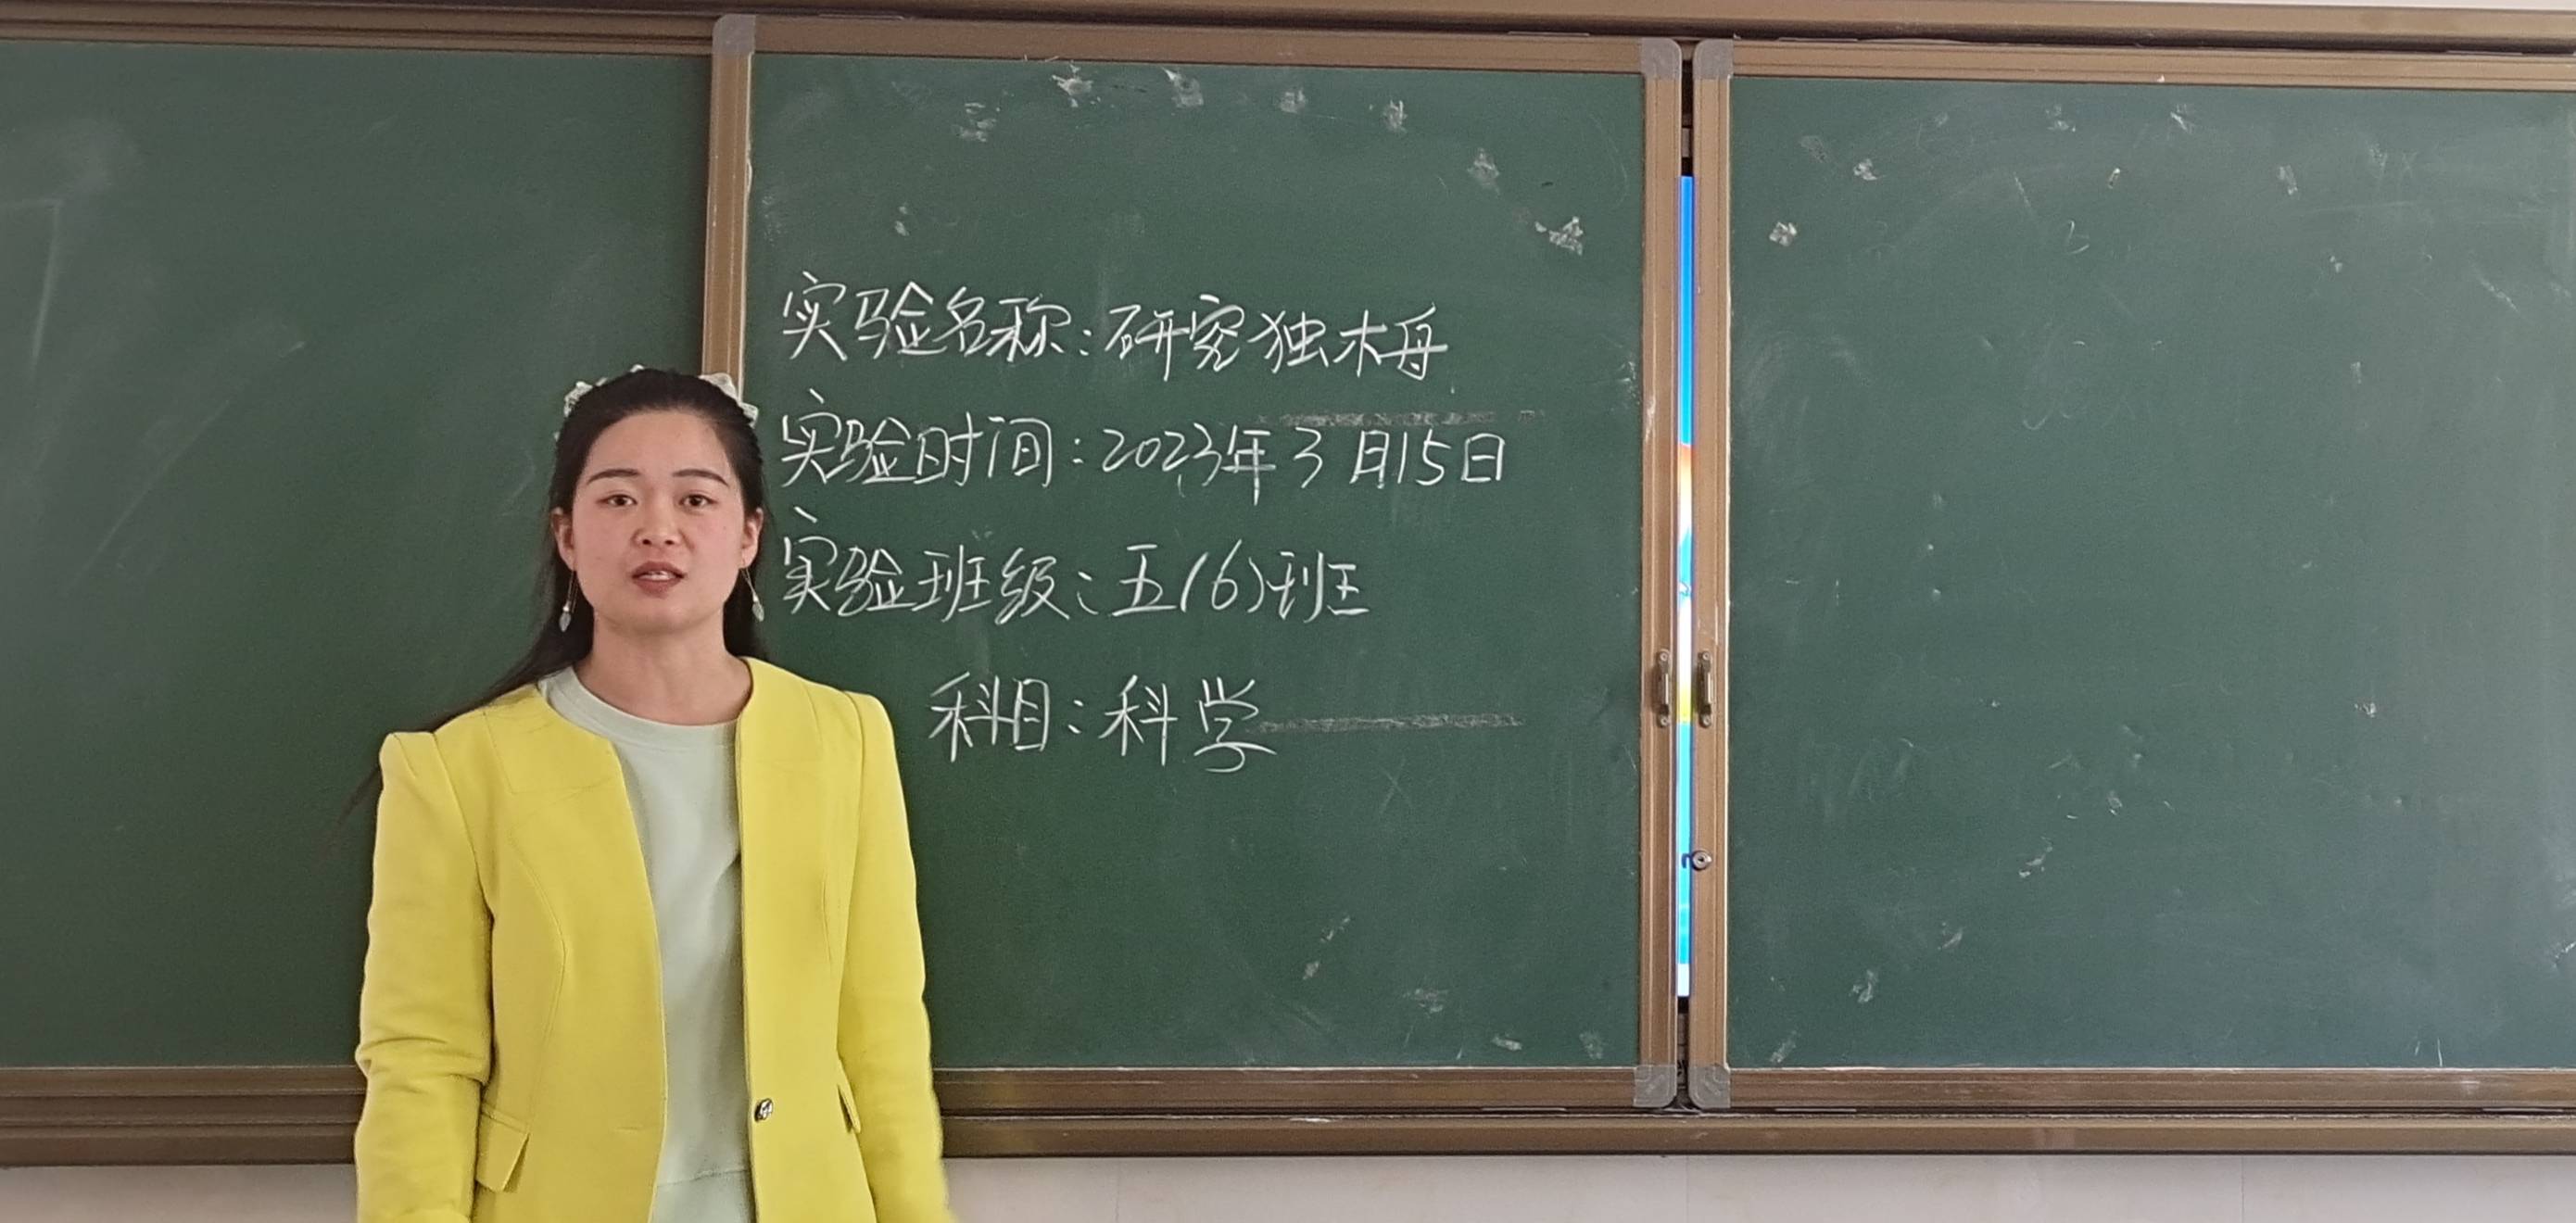 实验名称：研究独木舟
实验时间：2023年3月15日
实验班级：五(6)班
科目：科学